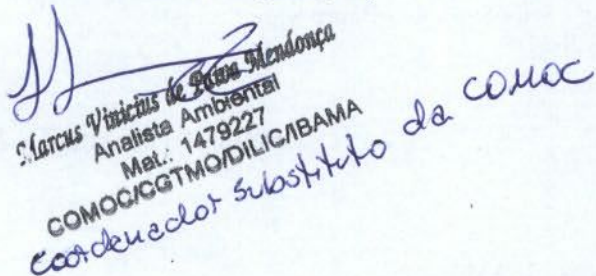 Marcus Vinicius de Paiva Mendonça
Analista Ambiental
Mat.: 1479227
COMOC/CGTMO/DILIC/IBAMA
Coordenador Substituto da COMOC